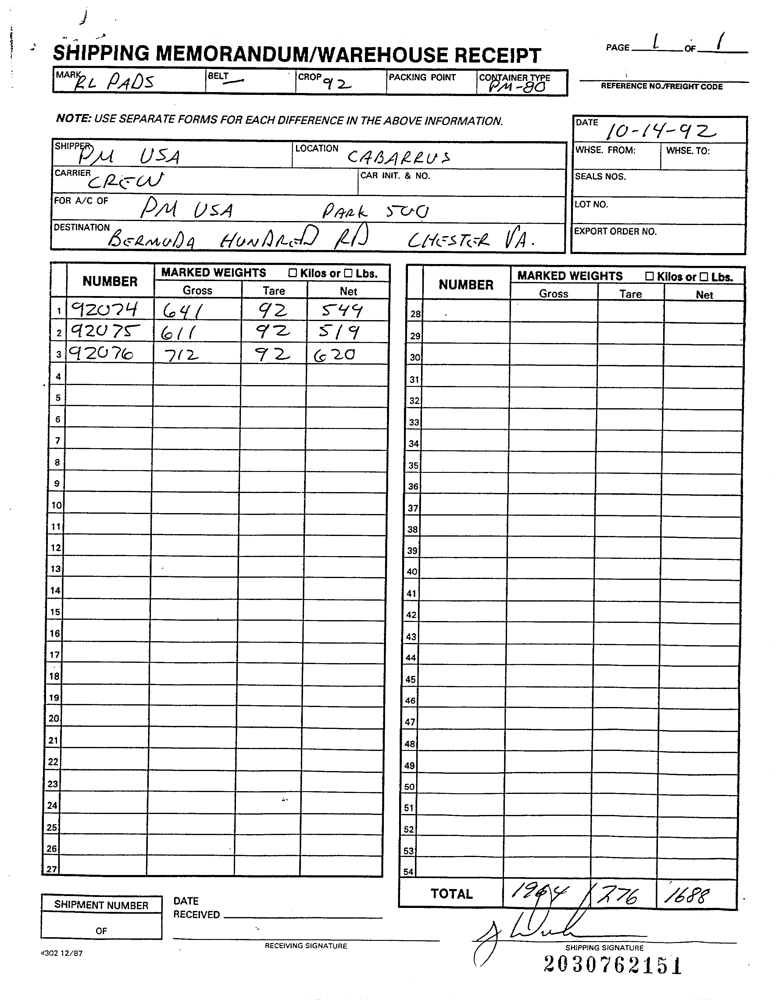 PAGE 1 OF 1
SHIPPING MEMORANDUM/WAREHOUSE RECEIPT
MARK RL PADS BELT — CROP 92 PACKING POINT CONTAINER TYPE PM-80
REFERENCE NO./FREIGHT CODE
NOTE: USE SEPARATE FORMS FOR EACH DIFFERENCE IN THE ABOVE INFORMATION.
DATE 10-14-92
SHIPPER PM USA LOCATION CABARRUS
WHSE. FROM: WHSE. TO:
CARRIER CREW CAR INIT. & NO.
SEALS NOS.
FOR A/C OF PM USA PARK 500
LOT NO.
DESTINATION BERMUDA HUNDRED RD CHESTER VA.
EXPORT ORDER NO.
NUMBER MARKED WEIGHTS ☐ Kilos or ☐ Lbs.
Gross Tare Net
1 92074 641 92 549
2 92075 611 92 519
3 92076 712 92 620
4
5
6
7
8
9
10
11
12
13
14
15
16
17
18
19
20
21
22
23
24
25
26
27
NUMBER MARKED WEIGHTS ☐ Kilos or ☐ Lbs.
Gross Tare Net
28
29
30
31
32
33
34
35
36
37
38
39
40
41
42
43
44
45
46
47
48
49
50
51
52
53
54
TOTAL 1964 276 1688
SHIPMENT NUMBER
OF
DATE
RECEIVED
RECEIVING SIGNATURE
SHIPPING SIGNATURE
#302 12/87
2030762151